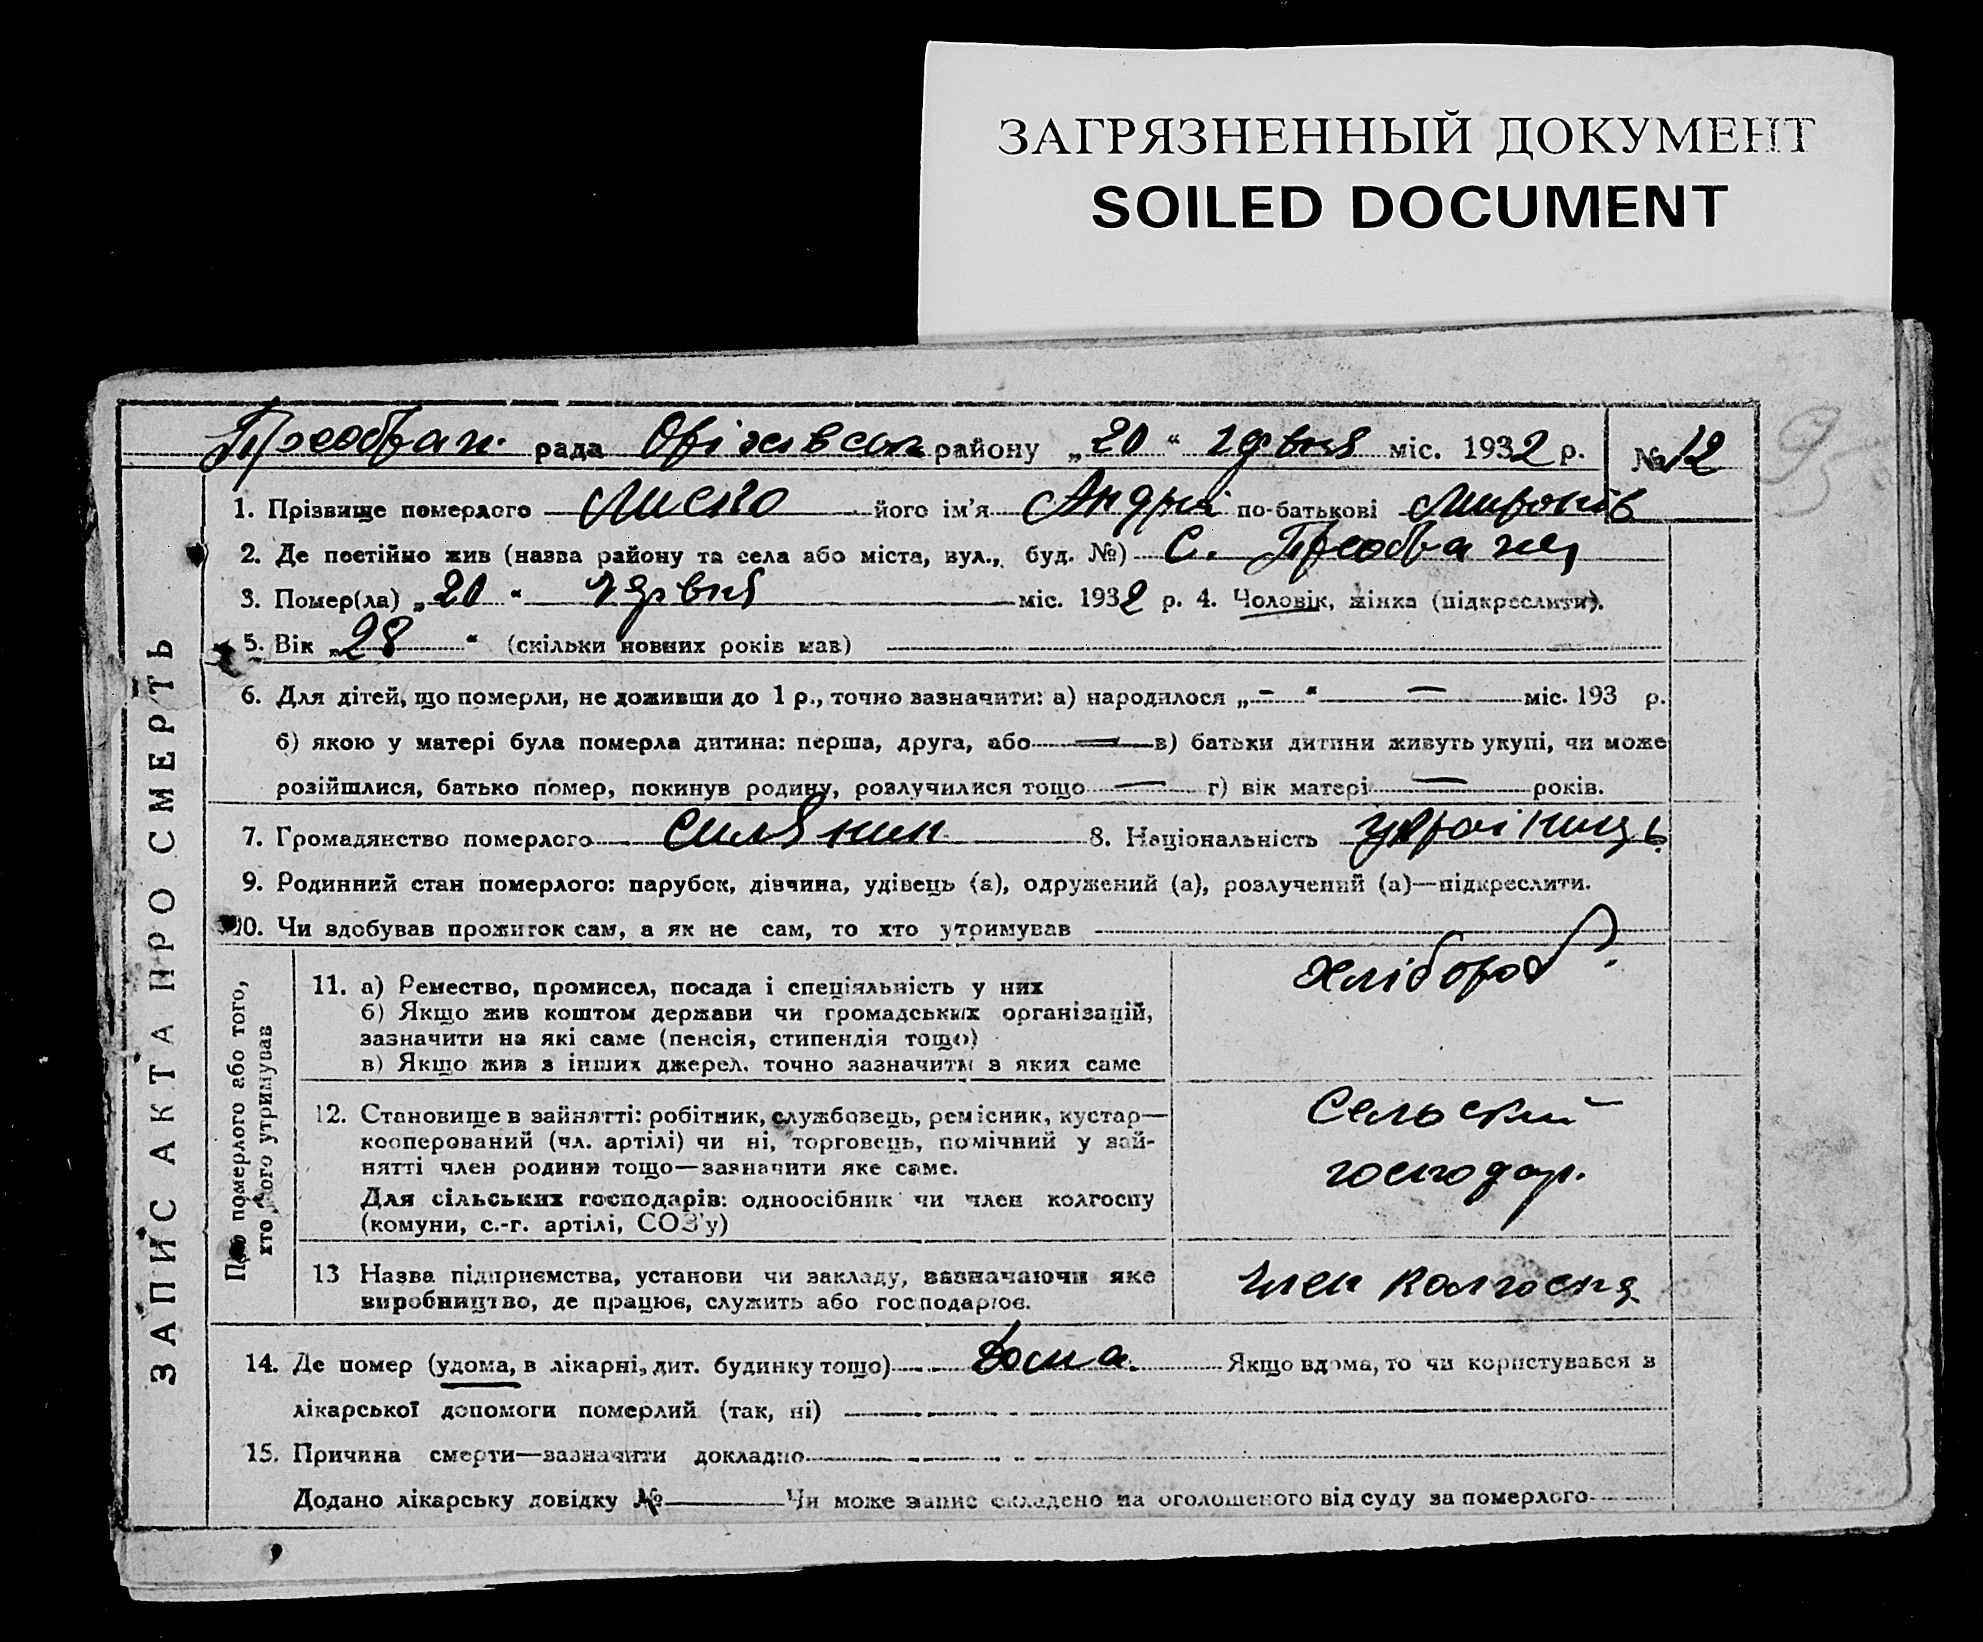 ЗАГРЯЗНЕННЫЙ ДОКУМЕНТ
SOILED DOCUMENT
95
Преображ. рада Оріхівськ району „20“ червня міс. 1932 р. № 12
1. Прізвище померлого його ім'я Андрій по-батькові Миронів
2. Де постійно жив (назва району та села або міста, вул., буд. №) С. Преображ
3. Помер(ла) „20“ червня міс. 1932 р. 4. Чоловік, жінка (підкреслити).
5. Вік „28“ (скільки повних років мав)
6. Для дітей, що померли, не доживши до 1 р., точно зазначити: а) народилося „–“ — міс. 193 р.
б) якою у матері була померла дитина: перша, друга, або — в) батьки дитини живуть укупі, чи може
розійшлися, батько помер, покинув родину, розлучилися тощо — г) вік матері — років.
7. Громадянство померлого силянин 8. Національність українець
9. Родинний стан померлого: парубок, дівчина, удівець (а), одружений (а), розлучений (а)—підкреслити.
10. Чи здобував прожиток сам, а як не сам, то хто утримував
ЗАПИС АКТА ПРО СМЕРТЬ
Про померлого або того,
хто його утримував
11. а) Ремество, промисел, посада і спеціяльність у них
хлібороб
б) Якщо жив коштом держави чи громадських організацій,
зазначити на які саме (пенсія, стипендія тощо)
в) Якщо жив з інших джерел, точно зазначити з яких саме
12. Становище в зайнятті: робітник, службовець, ремісник, кустар—
кооперований (чл. артілі) чи ні, торговець, помічний у зай-
нятті член родини тощо—зазначити яке саме.
Для сільських господарів: одноосібник чи член колгоспу
(комуни, с.-г. артілі, СОЗ'у)
Сельский
господар.
13 Назва підприємства, установи чи закладу, зазначаючи яке
виробництво, де працює, служить або господарює.
член колгоспу
14. Де помер (удома, в лікарні, дит. будинку тощо) дома. Якщо вдома, то чи користувався в
лікарської допомоги померлий (так, ні)
15. Причина смерти—зазначити докладно
Додано лікарську довідку № Чи може запис складено на оголошеного від суду за померлого